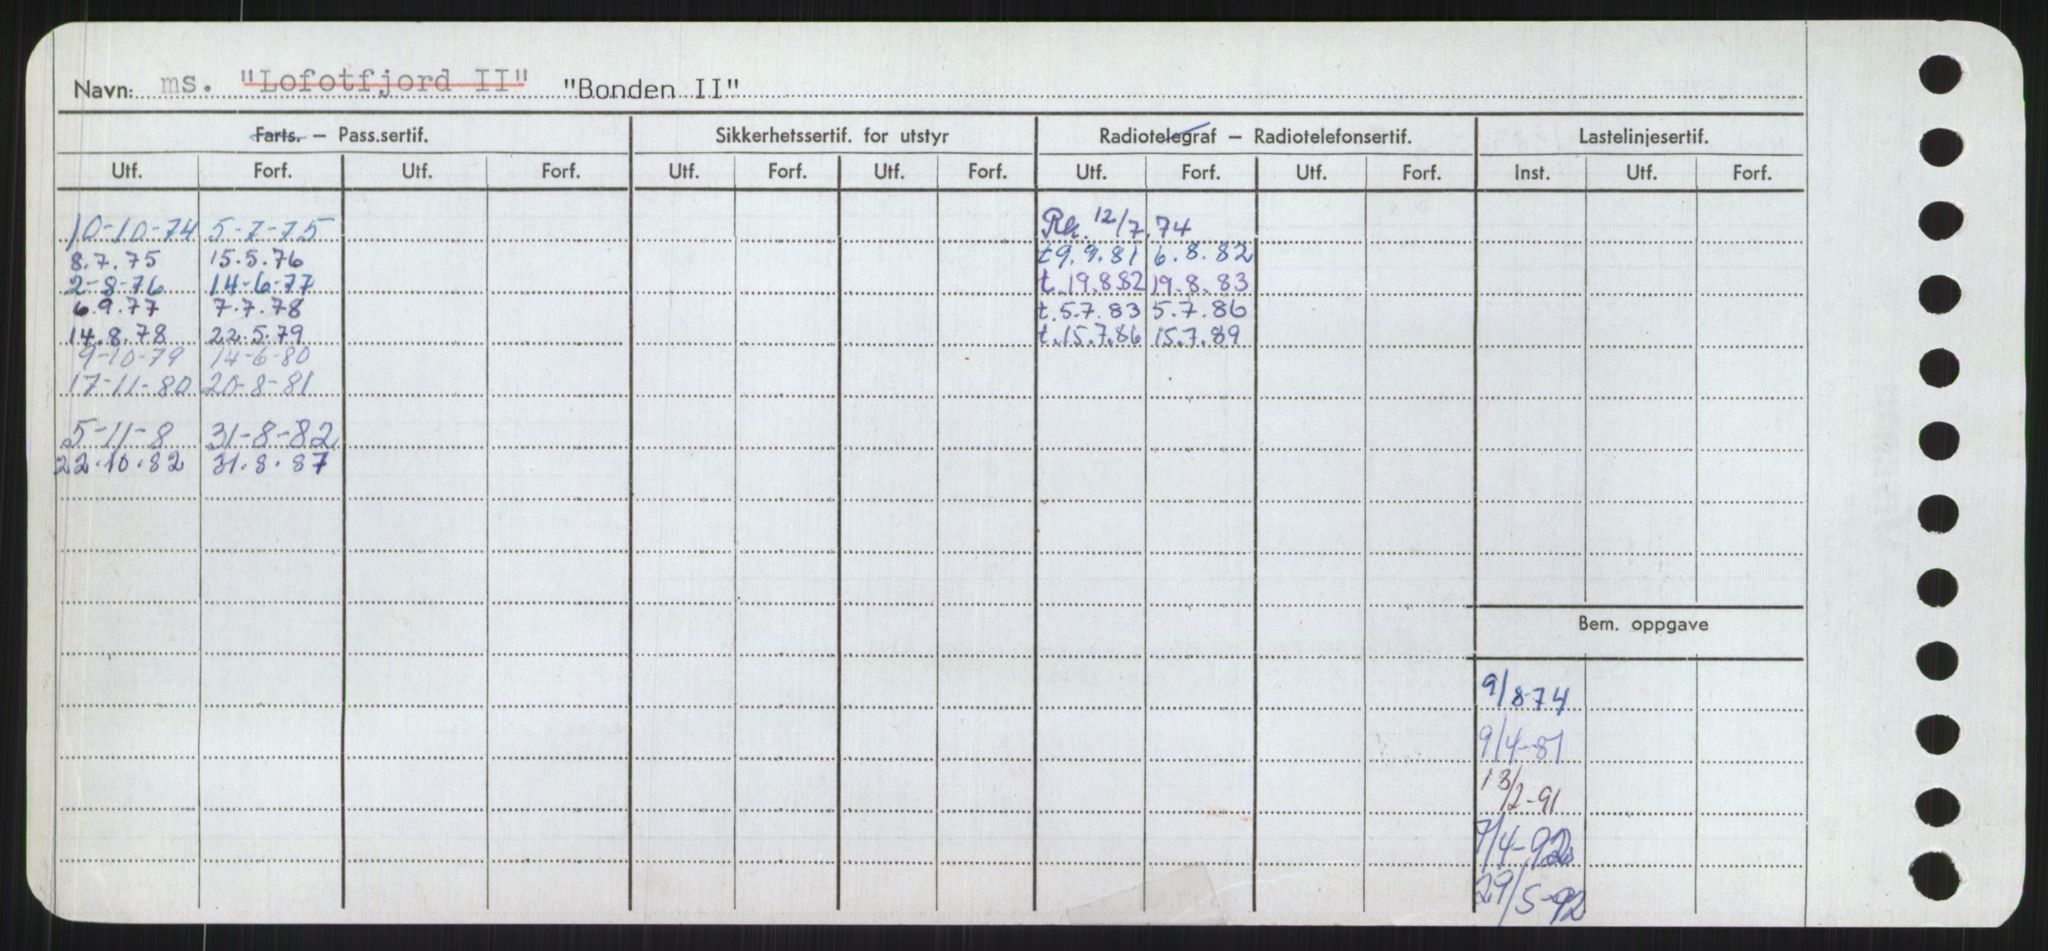 Navn: ms. "Lofotfjord II" "Bonden II"
Farts. — Pass.sertif. Sikkerhetssertif. for utstyr Radiotelegraf — Radiotelefonsertif. Lastelinjesertif.
Utf. Forf. Utf. Forf. Utf. Forf. Utf. Forf. Utf. Forf. Utf. Forf. Inst. Utf. Forf.
10-10-74 5-7-75 12/7.74
8.7.75 15.5.76 t9.9.81 6.8.82
2-8-76 14-6-77 t.19.882 19.8.83
6.9.77 7.7.78 t.5.7.83 5.7.86
14.8.78 22.5.79 t.15.7.86 15.7.89
9-10-79 14-6-80
17-11-80 20-8-81
5-11-8 31-8-82
22.10.82 31.8.87
Bem. oppgave
9/8-74
9/4-81
13/2-91
7/4-92
29/5-92